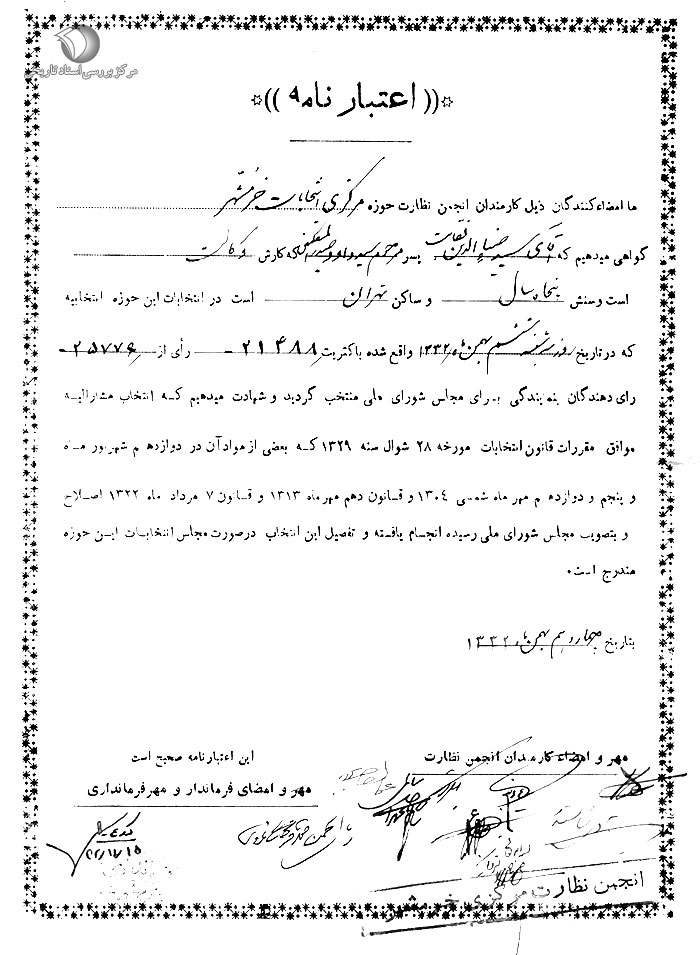 مرکز بررسی اسناد تاریخی
((اعتبار نامه))
ما امضاءکنندگان ذیل کارمندان انجمن نظارت حوزه مرکزی انتخابات خرمشهر
گواهی میدهیم که آقای سید ضیاءالدین نقابت پسر مرحوم سید داود که کارش وکالت
است و سنش پنجاه سال و ساکن تهران است در انتخابات این حوزه انتخابیه
که در تاریخ روز شنبه ششم بهمن ماه ۱۳۳۲ واقع شده باکثریت ۲۱۴۸۸ رأی از ۲۵۷۷۶
رای دهندگان بنمایندگی برای مجلس شورای ملی منتخب گردید و شهادت میدهیم که انتخاب مشارالیه
موافق مقررات قانون انتخابات مورخه ۲۸ شوال سنه ۱۳۲۹ که بعضی از مواد آن در دوازدهم شهریور ماه
و پنجم و دوازدهم مهر ماه شمسی ۱۳۰۴ و قانون دهم مهر ماه ۱۳۱۳ و قانون ۷ مرداد ماه ۱۳۲۲ اصلاح
و بتصویب مجلس شورای ملی رسیده انجام یافته و تفصیل این انتخاب درصورت مجلس انتخابات این حوزه
مندرج است.
بتاریخ بهمن ماه ۱۳۳۲
مهر و امضاء کارمندان انجمن نظارت
این اعتبارنامه صحیح است
مهر و امضای فرماندار و مهر فرمانداری
انجمن نظارت مرکزی خرمشهر